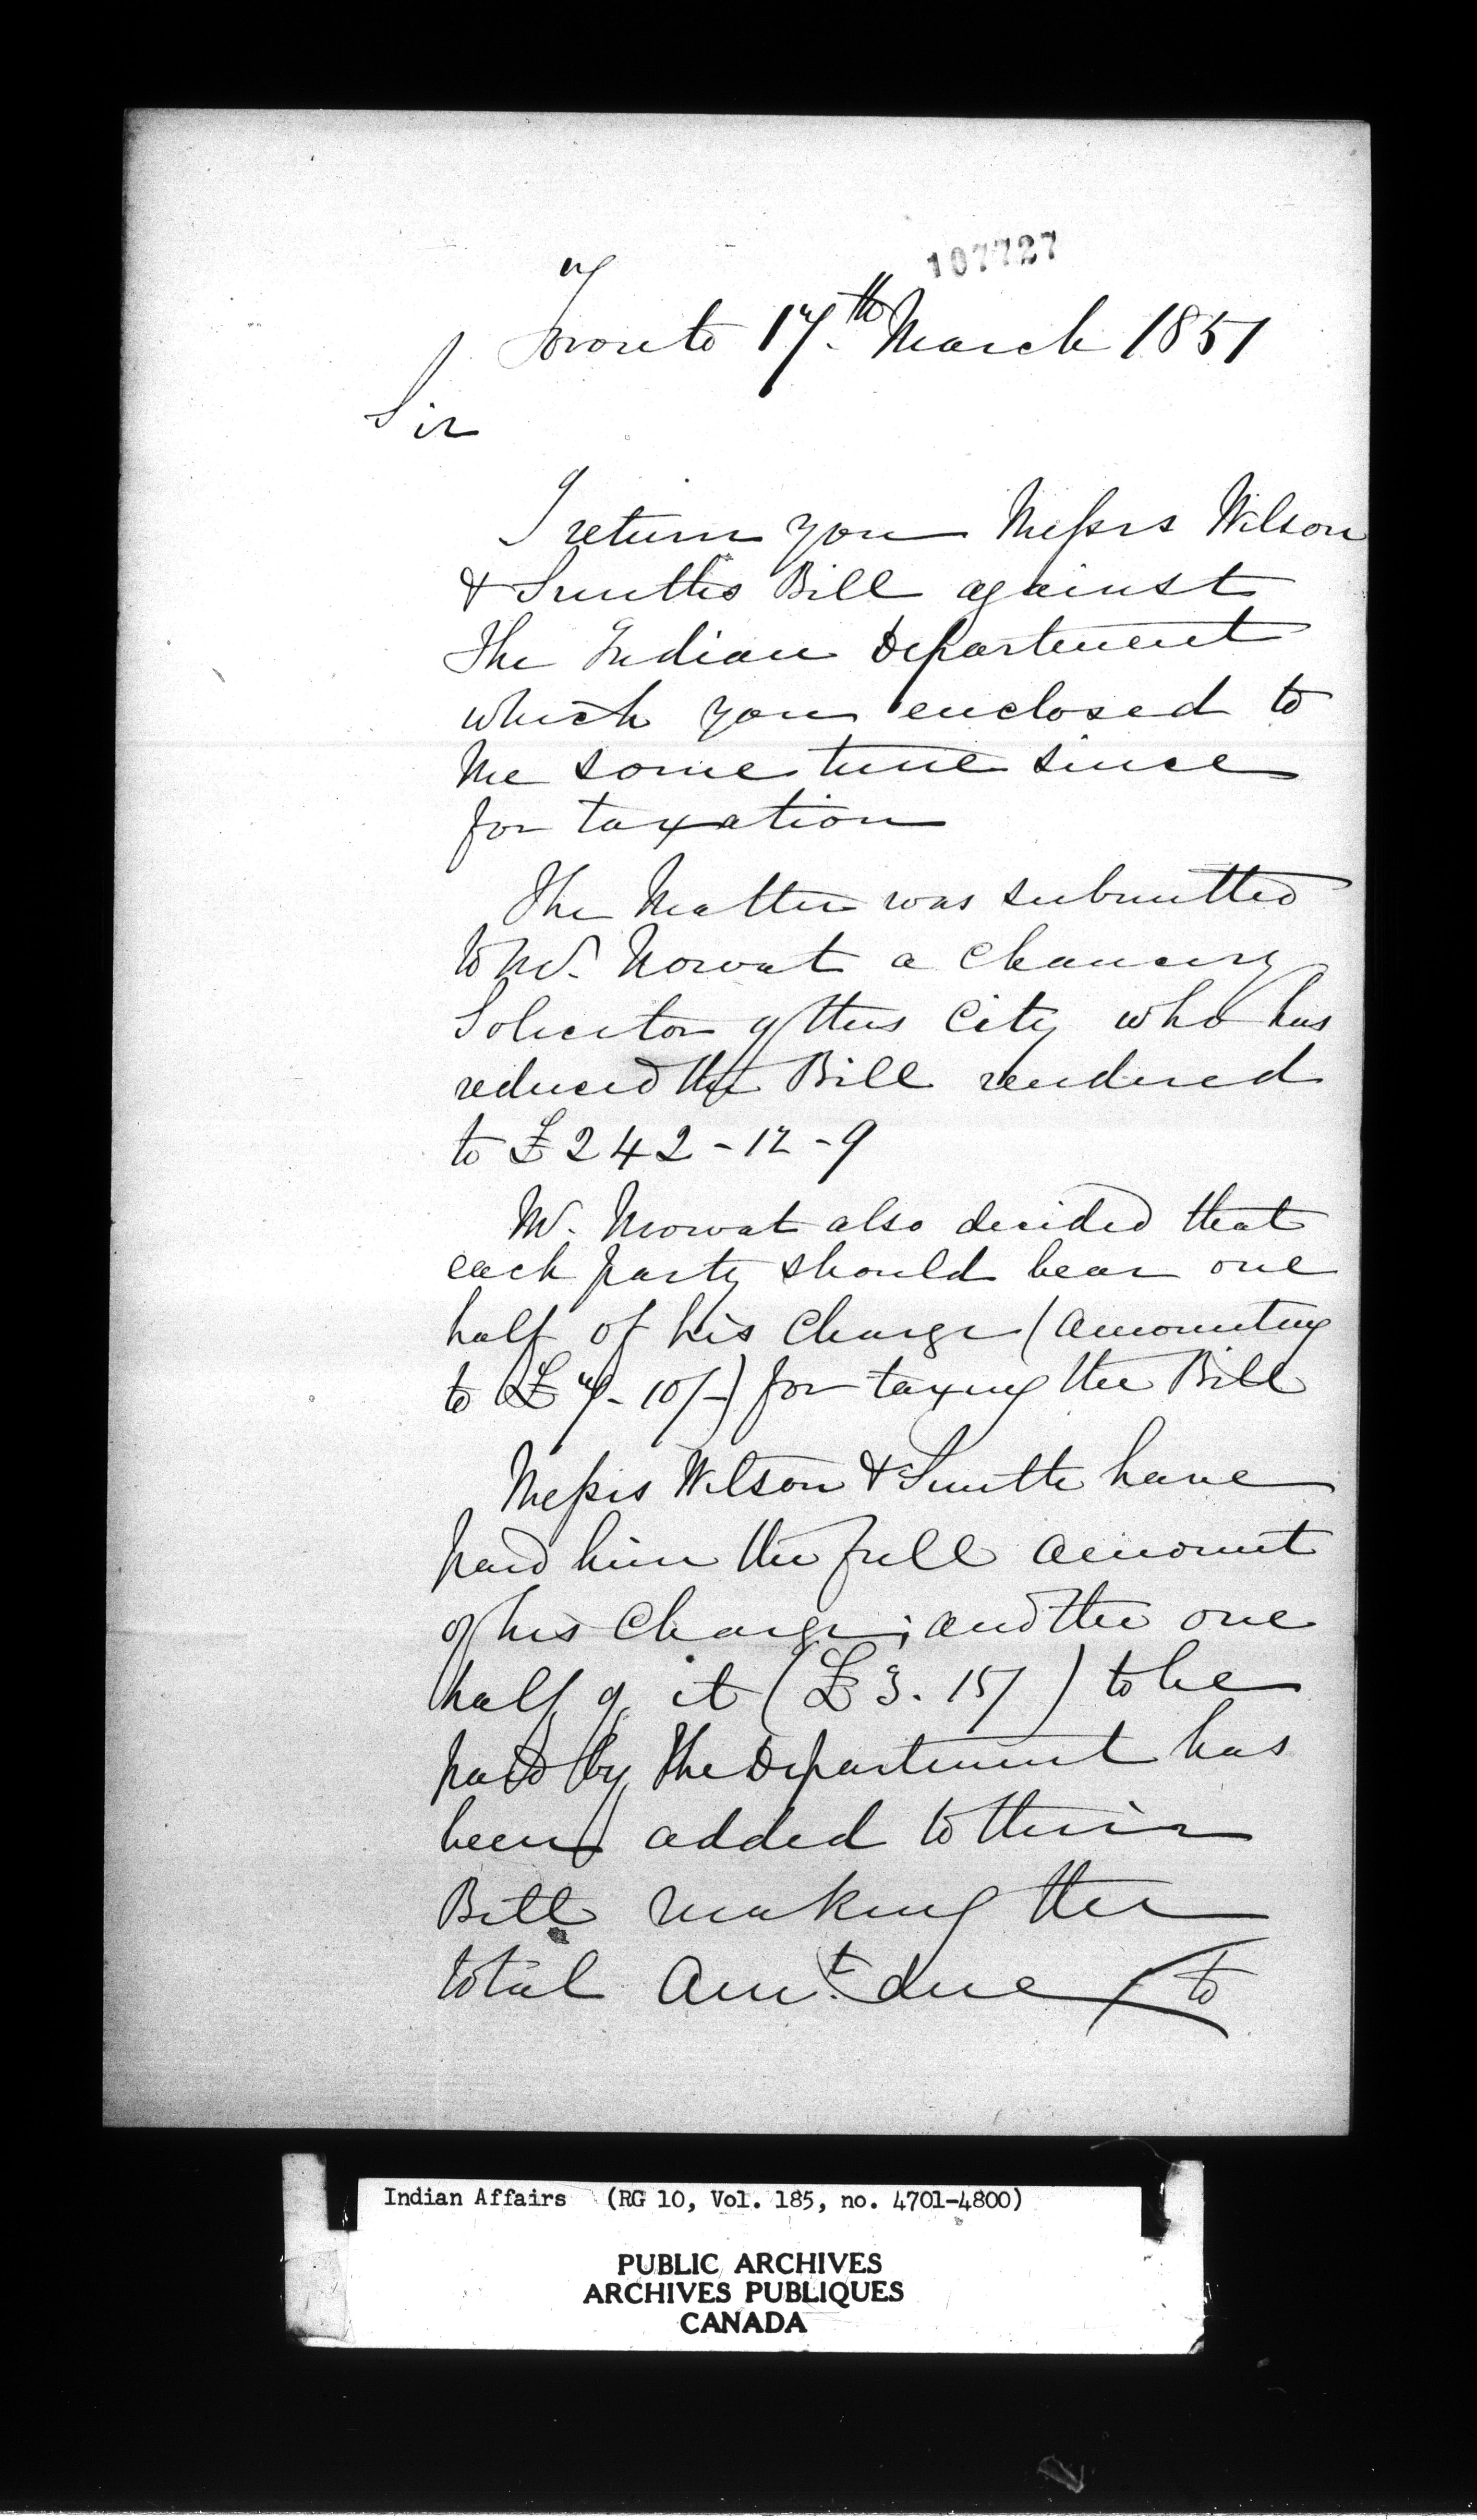 107727
Toronto 17th March 1851
Sir
I return you Messrs Wilson
& Smiths Bill against
The Indian Department
which you enclosed to
me some time since
for taxation
The Matter was submitted
to Mr. Mowat a Chancery
Solicitor of this City who has
reduced the Bill rendered
to £242-12-9
Mr. Mowat also decided that
each party should bear one
half of his Charge (amounting
to £7-10/-) for taxing the Bill
Messrs Wilson & Smith have
paid him the full amount
of his Charge; and the one
half of it (£3.15/) to be
paid by the Department has
been added to their
Bill making the
total Amt. due to
Indian Affairs (RG 10, Vol. 185, no. 4701-4800)
PUBLIC ARCHIVES
ARCHIVES PUBLIQUES
CANADA